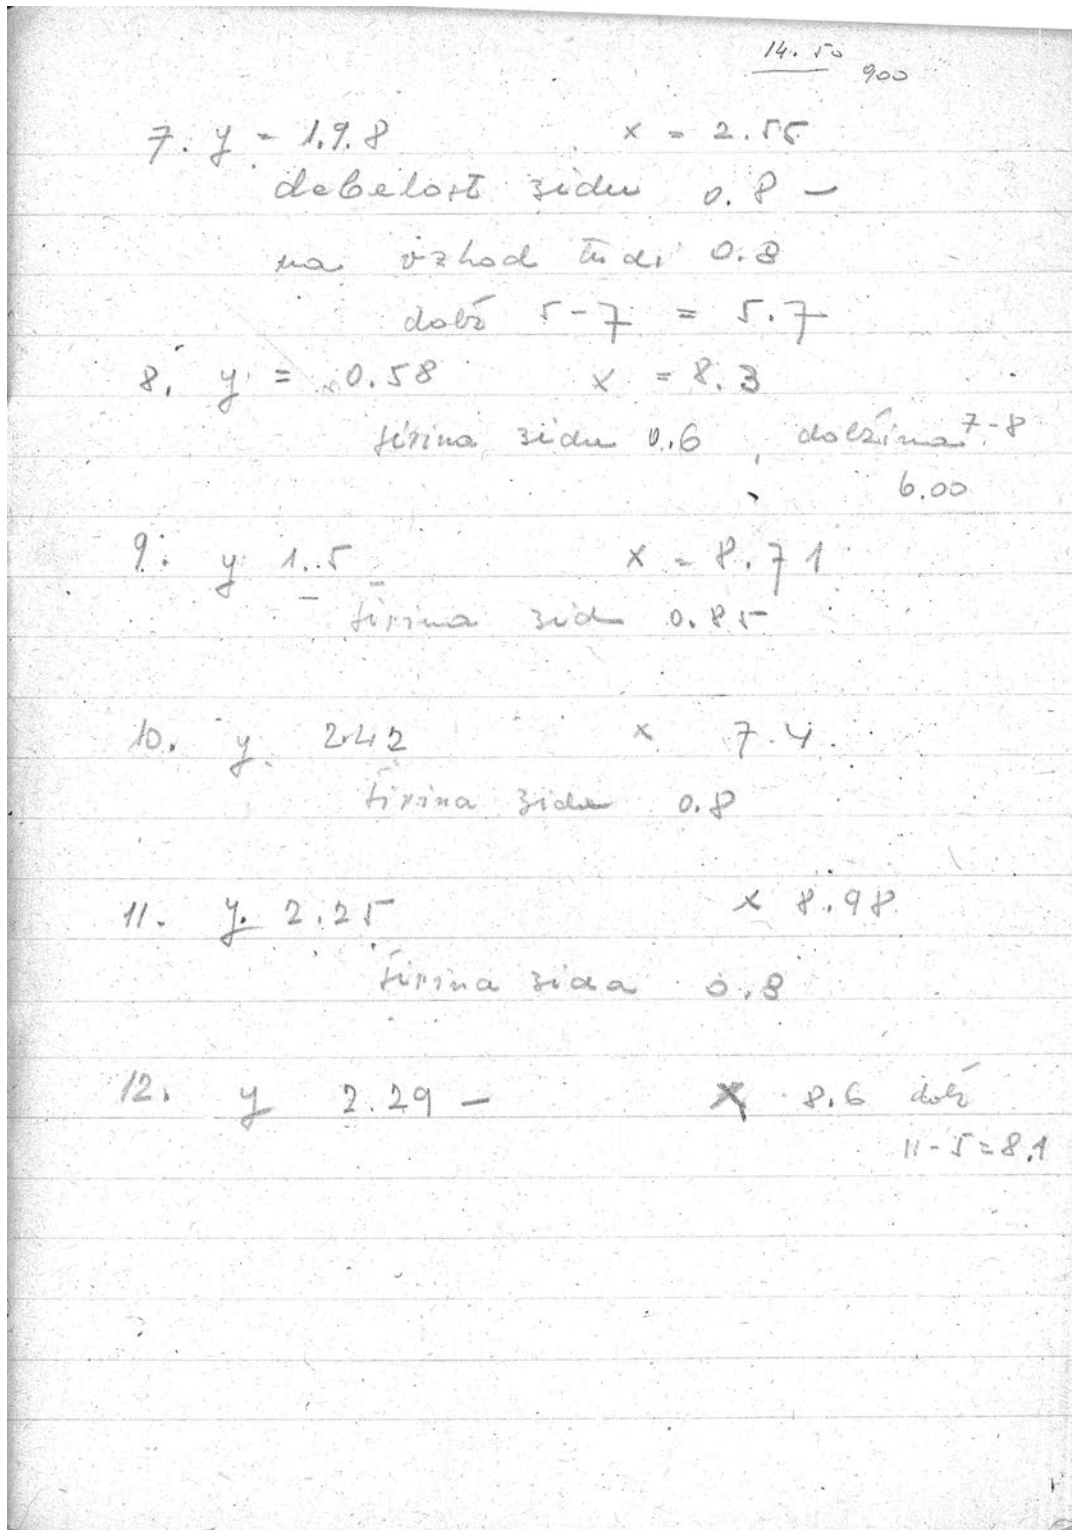 14.50 900
7. y = 1.9.8 x = 2.55
debelost zidu 0.8 —
na vzhod tudi 0.8
dolž 5-7 = 5.7
8. y = 0.58 x = 8.3
širina zidu 0.6, dolžina 7-8
6.00
9. y 1.5 x = 8.71
širina zidu 0.85
10. y 2.42 x 7.4
širina zidu 0.8
11. y. 2.25 x 8.98
širina zida 0.8
12. y 2.29 — x 8.6 dolž
11-5=8.1